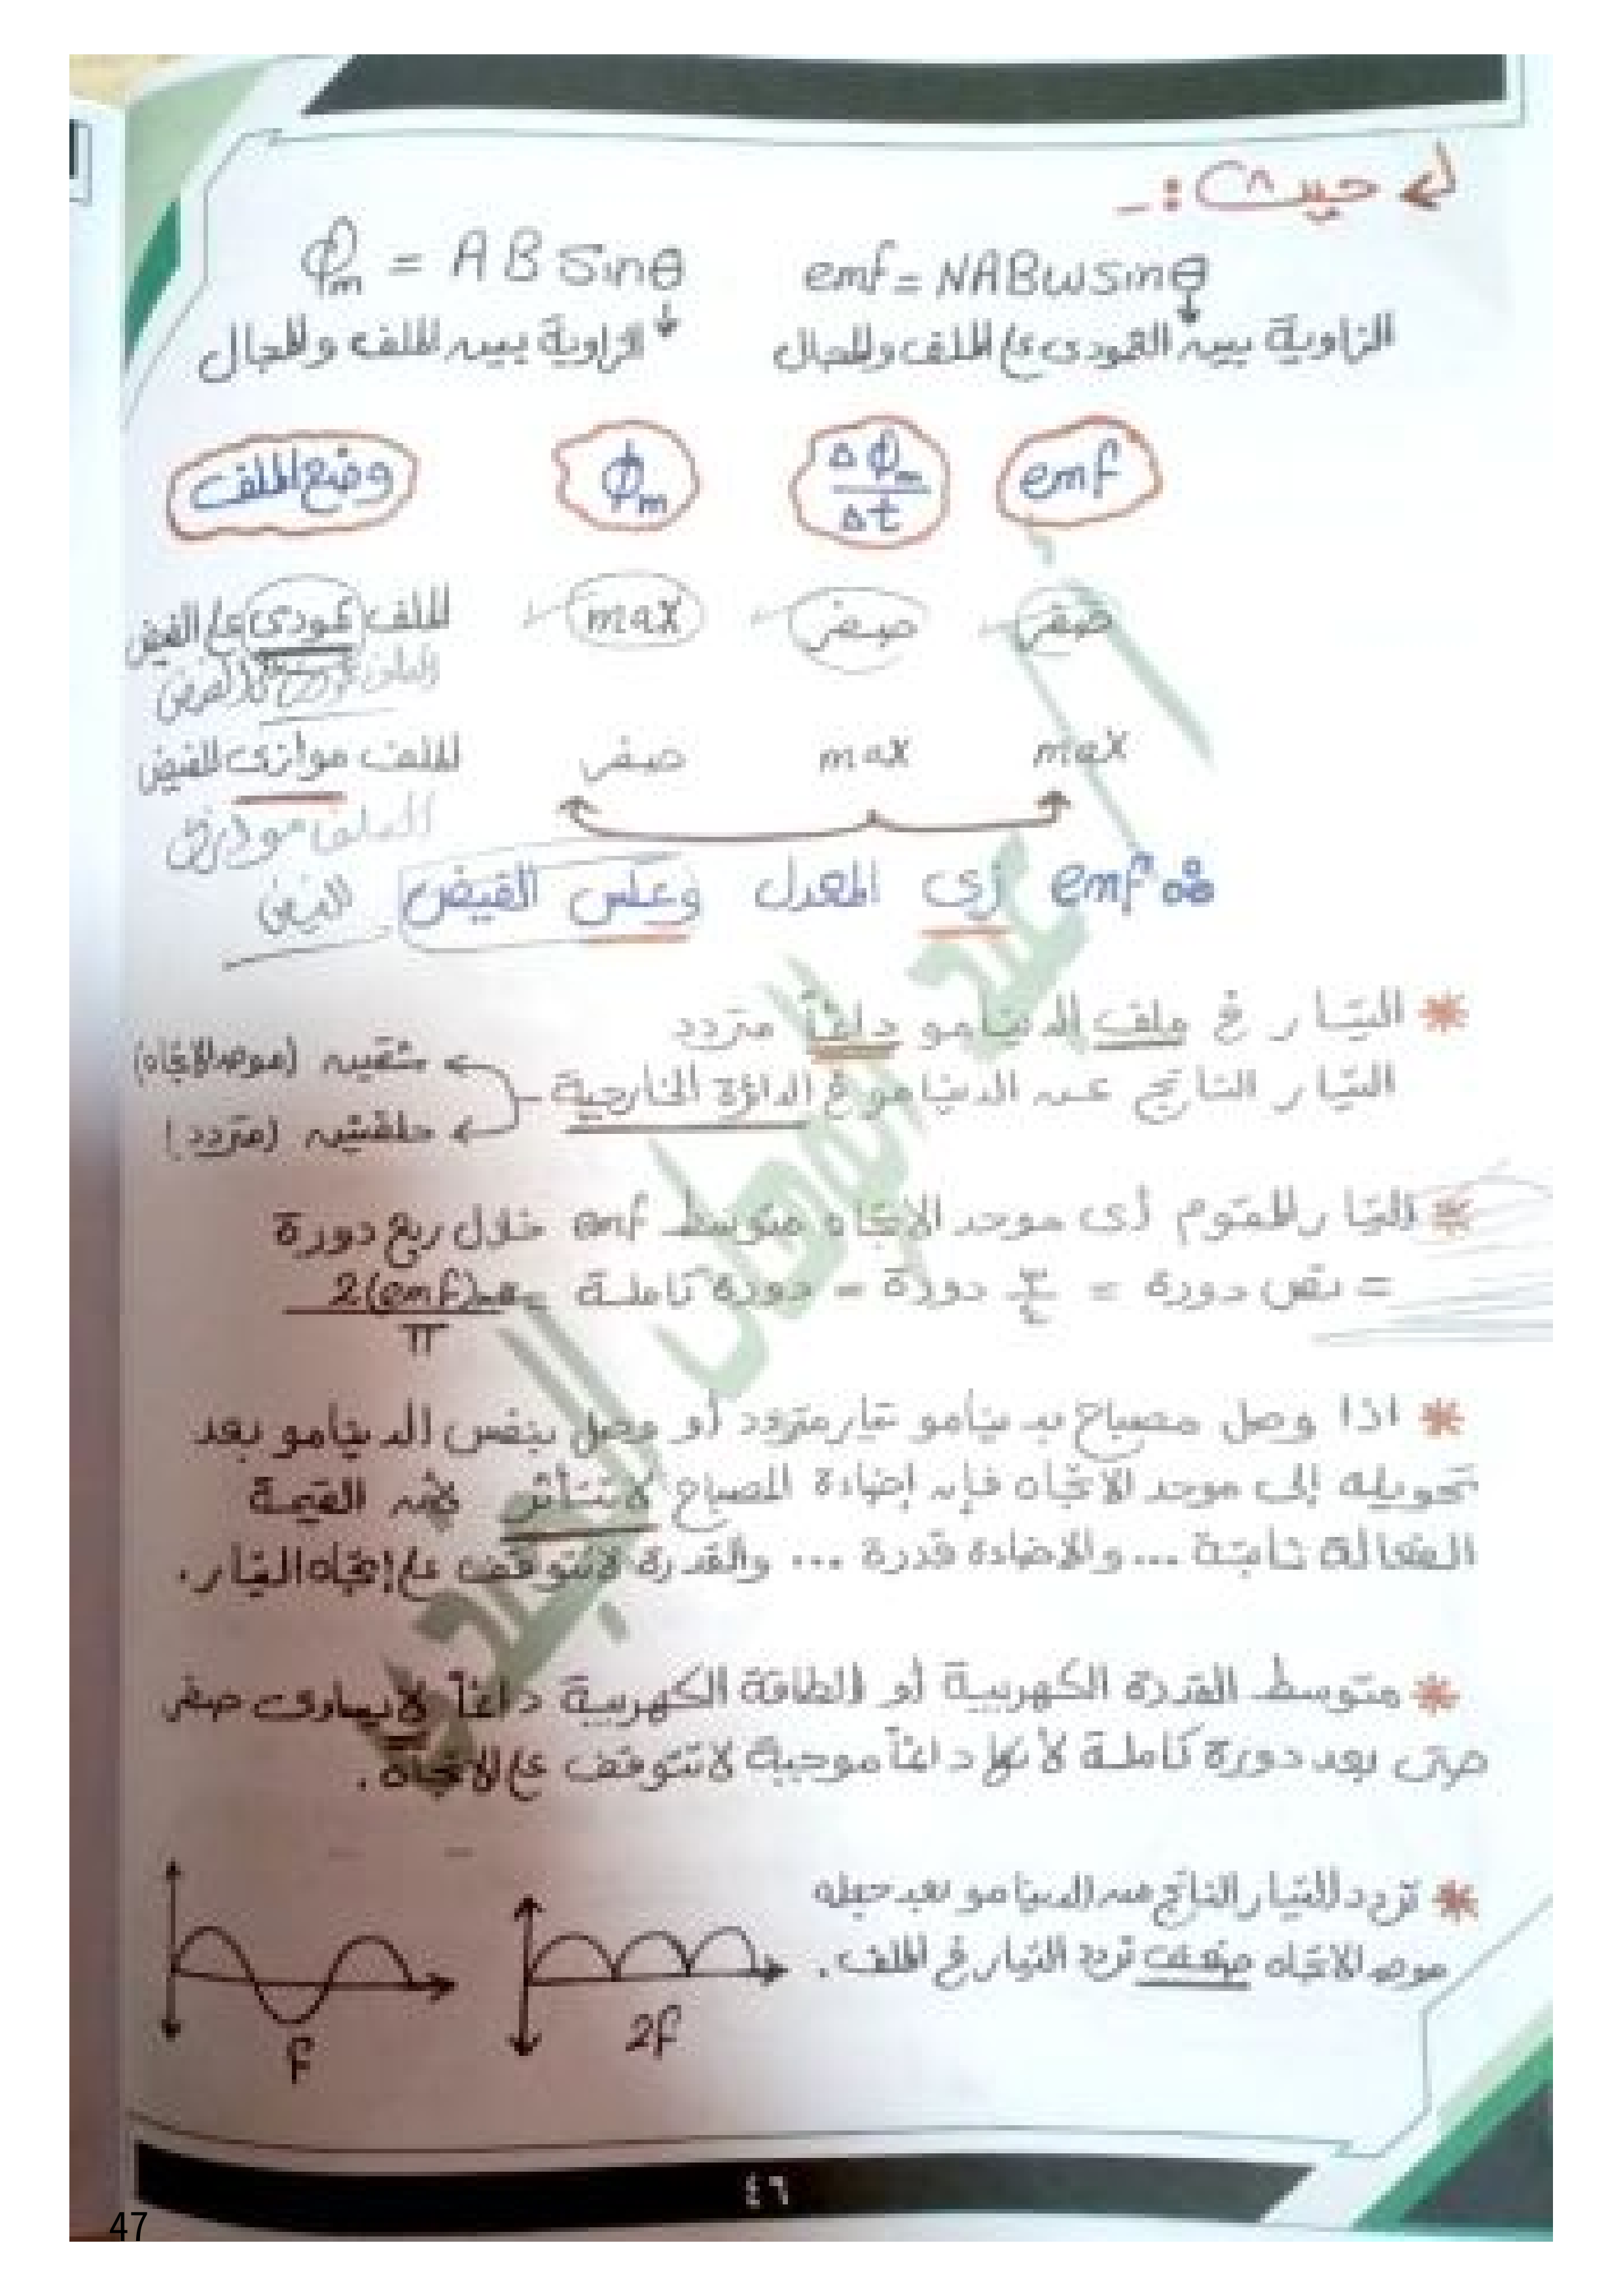 حيث :-
emf = NABωsinθ
الزاوية بين العمودى على الملف والمجال
Φm = AB sinθ
الزاوية بين الملف والمجال
emf ΔΦm/Δt Φm وضع الملف
صفر صفر max الملف عمودى على الفيض
الملف عمودى على الفيض
max max صفر الملف موازى للفيض
الملف موازى
للفيض
∴ emf زى المعدل وعكس الفيض
* التيار فى ملف الدينامو دائماً متردد
التيار الناتج عن الدينامو فى الدائرة الخارجية
شقين (موحد الاتجاه)
حلقتين (متردد)
* التيار المقوم أى موحد الاتجاه متوسط emf خلال ربع دورة
= نص دورة = ٣/٤ دورة = دورة كاملة = 2(emf)max/π
* اذا وصل مصباح بدينامو تيار متردد أو وصل بنفس الدينامو بعد
تحويله إلى موحد الاتجاه فإن إضاءة المصباح لا تتأثر لأن القيمة
الفعالة ثابتة ... والاضاءة قدرة ... والقدرة لا تتوقف على إتجاه التيار.
* متوسط القدرة الكهربية أو الطاقة الكهربية دائماً لا يساوى صفر
حتى بعد دورة كاملة لأنها دائماً موجبة لا تتوقف على الاتجاه.
* تردد التيار الناتج من الدينامو بعد جعله
موحد الاتجاه ضعف تردد التيار فى الملف.
2f
f
٤٦
47